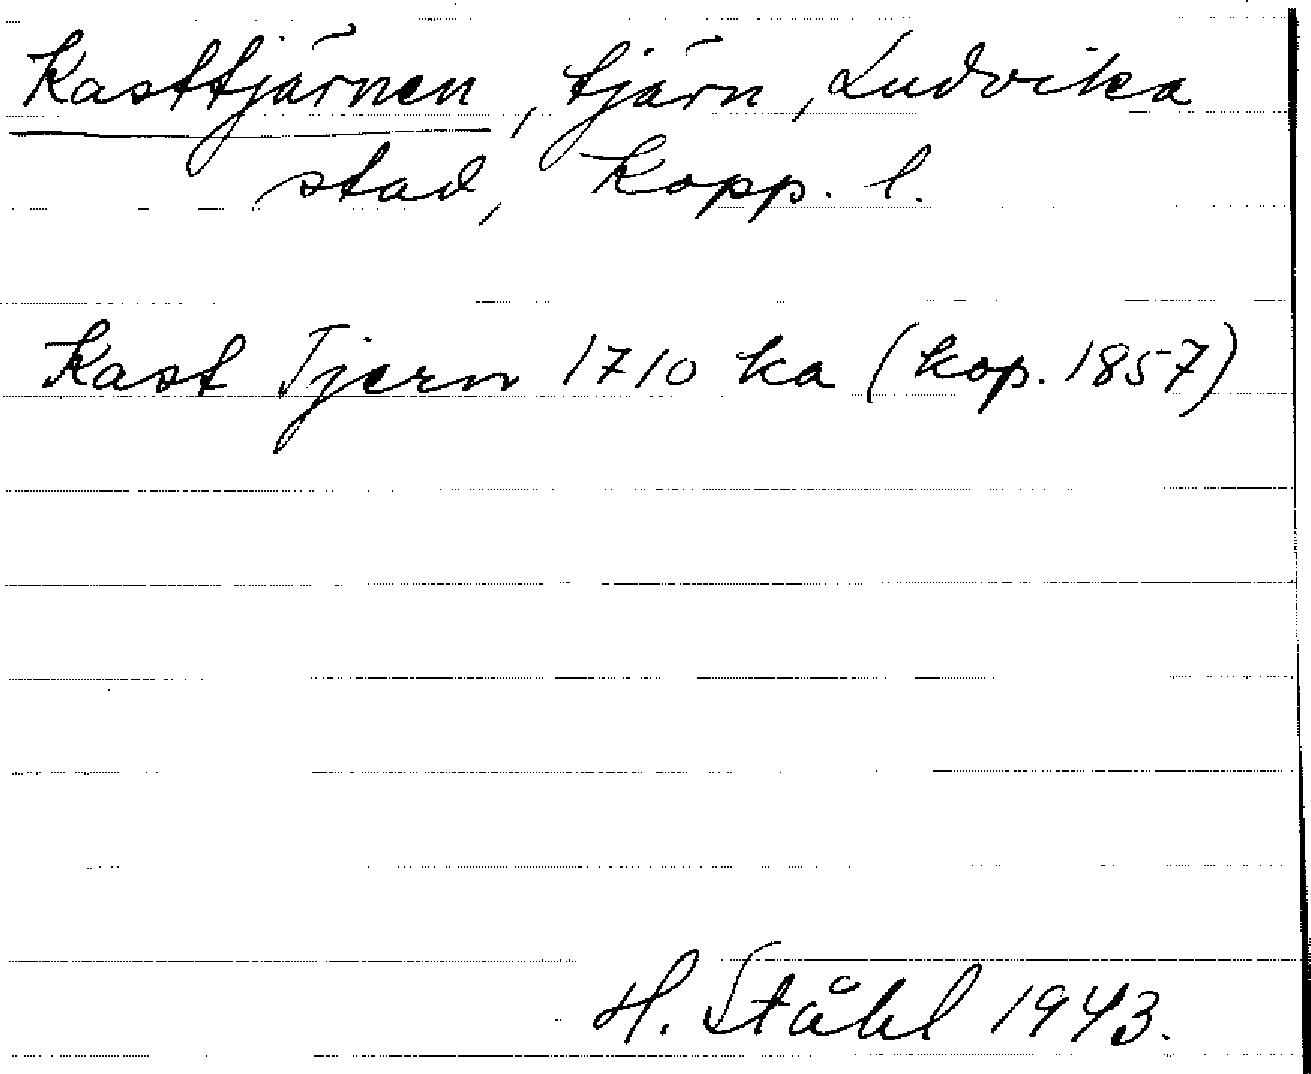 Kasttjärnen, tjärn, Ludvika
stad, Kopp. l.
Kast Tjern 1710 ka (kop. 1857)
H. Ståhl 1943.